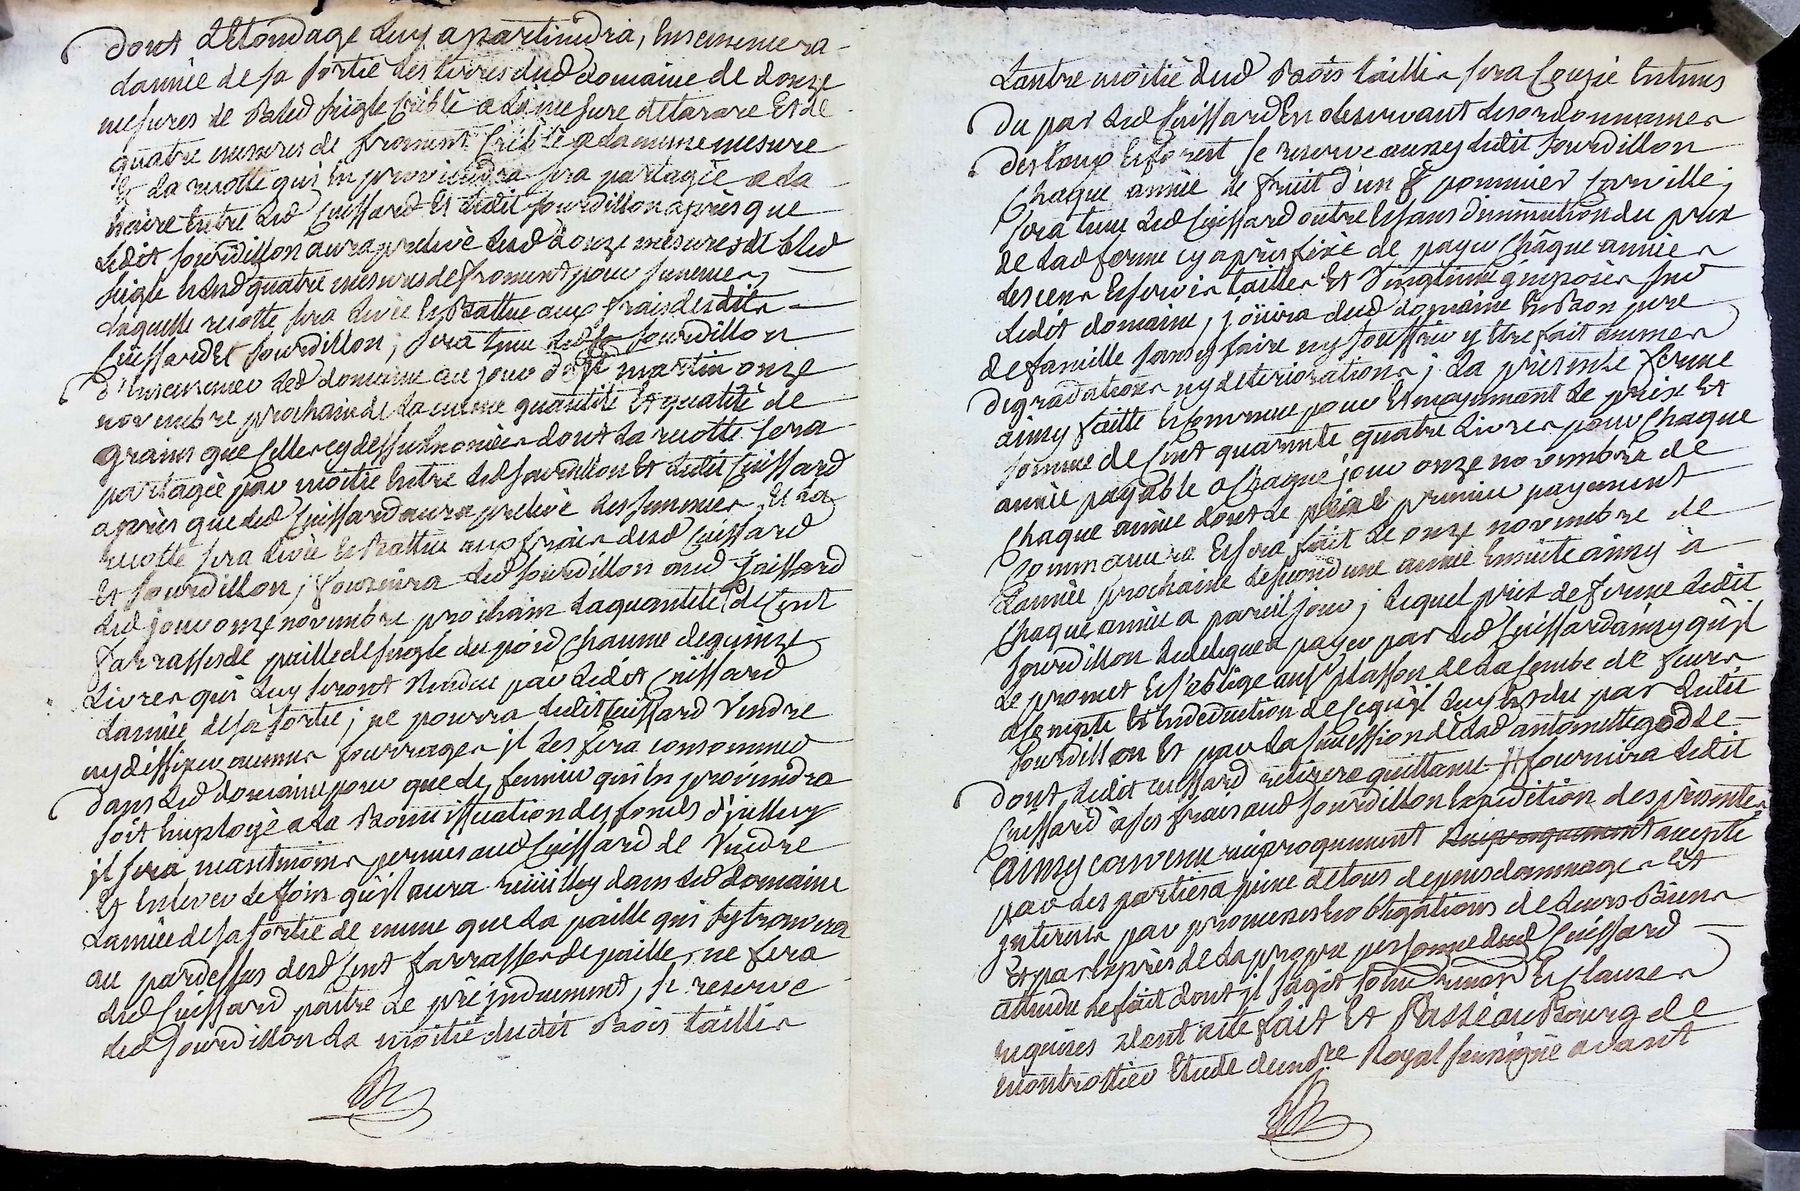 dont Létondage Luy apartiendra, Ensemencera
Lannée de sa sortie des terres dud domaine de douze
mesures de Bled seigle Criblé a la mesure de tarare Et de
quatre mesures de froment Criblé a la meme mesure
& La recolte qui En proviendra sera partagée a la
entre Led Cuissard Et Ledit Sourdillon après que
Ledit Sourdillon aura prelevé Lesd douze mesures de bled
seigle Et Lesd quatre mesures de froment pour semence
Laquelle recolte sera Levée Et Battue aux frais desdits
Cuissard Et Sourdillon; sera tenu Led Sourdillon
d'Ensemencer Led domaine au jour de St martin onze
novembre prochain de La meme quantité Et qualité de
grains que Celles cy dessus dont La recolte sera
partagée par moitié Entre Led Sourdillon Et Ledit Cuissard
après que Led Cuissard aura prelevé Les semences, Et La
recolte sera Levée Et Battue aux frais desd Cuissard
Et Sourdillon; fournira Led Sourdillon aud Cuissard
Led jour onze novembre prochain La quantité de Cent
farrasses de paille de seigle du poid Chacune de quinze
Livres qui Luy seront Rendue par Ledit Cuissard
Lannée de sa sortie; ne pourra Ledit Cuissard Vendre
ny dessiper aucuns fourrages il Les fera consommer
dans Led domaine pour que Le fumier qui En proviendra
soit Employé a La Bonniffication des fonds d'jcelluy
jl sera neantmoins permis aud Cuissard de Vendre
Et Enlever Le foin qu'jl aura reüeilly dans Led domaine
Lannée de sa sortie de meme que La paille qui sy trouvera
au pardessus desd Cent farrasses de paille, ne fera
Led Cuissard paitre Le pré jnduement, se reserve
Led Sourdillon La moitié dudit Bois taillis
Lautre moitié dud Bois taillis sera Coupée
par Led Cuissard En observant Les ordonnances
des Eaux Et forest se reserve aussy Ledit Sourdillon
Chaque année Le fruit d'un pommier
sera tenu Led Cuissard outre Et sans diminution du prix
de Lad ferme cy après fixé de payer Châque année
Les cens Et servis tailles Et Vingtieme jmposés sur
Ledit domaine, joüira dud domaine En Bon pere
de famille sans y faire ny souffrir y Etre fait aucunes
degradations ny deteriorations; La presente ferme
ainsy faitte Et convenue pour Et moyennant Le prix Et
somme de Cent quarante quatre Livres pour Chaque
année payable a Chaque jour onze novembre de
Chaque année dont Le premier payement
Commancera Et sera fait Le onze novembre de
Lannée prochaine Le second une année Ensuite ainsy à
Chaque année a pareil jour; Lequel prix de ferme Ledit
Sourdillon delegue a payer par Led Cuissard ainsy qu'jl
Le promet Et s'oblige au Sr plasson de La Combe de feurs
a Compte Et En deduction de Ce qu'jl Luy Est du par Ledit
Sourdillon Et par La succession de Lad antoinette godde
dont Ledit Cuissard retirera quittance fournira Ledit
Cuissard a ses frais aud Sourdillon Expedition des presentes
ainsy convenu reciproquement reciproquement accepté
par Les parties a peine de tous depens dommages Et
jnterets par promesses Et obligations de Leurs Biens
Et par Exprès de La propre personne dud Cuissard
attendu Le fait dont jl s'agit Et Clauses
requises dont acte fait Et Passé au Bourg de
montrottier Etude du nore Royal soussigné avant